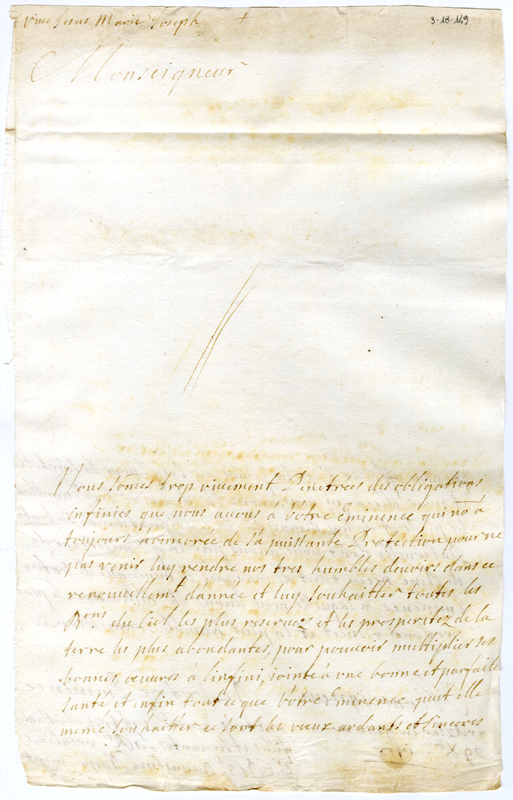 Vive Jesus Marie Joseph +
3-18-149
Monseigneur
Nous som̃es trop vivement Pénétrées des obligations
infinies que nous avons à Vôtre Eminence qui nõ à
toujours honorée de sa puissante Protection pour ne
pas venir luy rendre nos tres humbles devoirs dans ce
renouvellemt. dannée et luy souhaitter toutes les
Bons. du Ciel les plus reservez et les prosperitez de la
terre les plus abondantes, pour pouvoir multiplier ses
bonnes œuvres a linfini, jointe à une bonne et parfaitte
santé et enfin tout ce que Vôtre Eminence peut elle
meme souhaitter ce sont les vœux ardants et sinceres